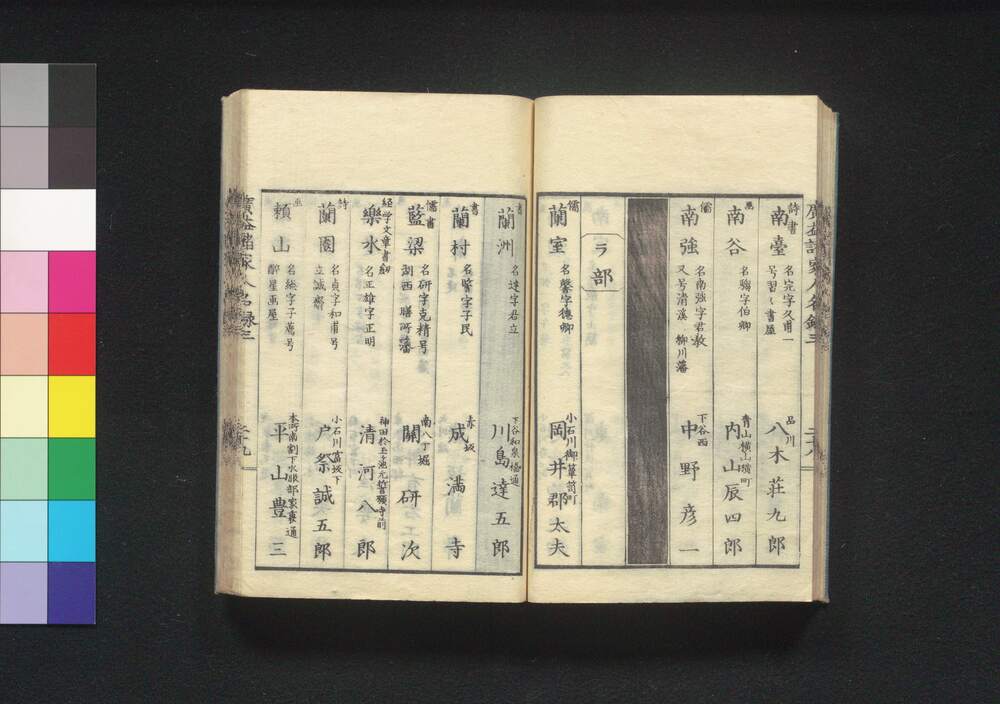 詩書 南臺 名完字久甫一号習〻書屋 品川 八木荘九郎
画 南谷 名騊字伯卿 青山横山横町 内山辰四郎
儒 南強 名南強字君教又号清溪 柳川藩 下谷西 中野彦一
ラ部
儒 蘭室 名馨字德卿 小石川御箪笥町 岡井郡太夫
書 蘭洲 名達字君立 下谷和泉橋通 川島達五郎
書 蘭村 名謦字子民 赤坂 成満寺
儒書 藍梁 名研字克精号湖西 膳所藩 南八丁堀 關研次
経学文章書劒 樂水 名正雄字正明 神田於玉ヶ池元誓願寺前 清河八郎
詩 蘭園 名貞字和甫号立誠齋 小石川富坂下 戸祭誠五郎
画 頼山 字子 号醉星画屋 本所南割下水服部家裏通 平山豊三
廣益諸家人名録三